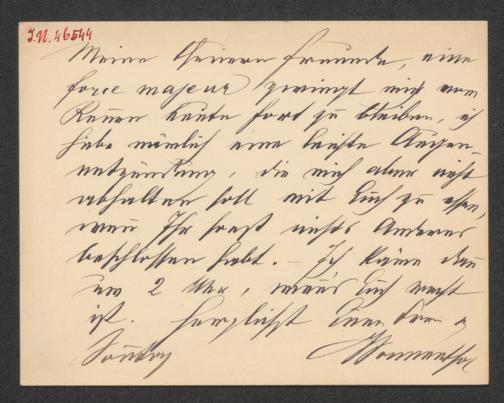 I.N. 46544
Meine theuern Freunde, eine
force majeur zwingt mich vom
Rennen heute fort zu bleiben, ich
habe nämlich eine leichte Augen-
entzündung, die mich aber nicht
abhalten soll mit Euch zu essen,
wenn Ihr sonst nichts Anderes
beschlossen habt. – Ich käme dann
um 2 Uhr, wenn's Euch recht
ist. Herzlichst Euer
Sonntag Sonnenthal